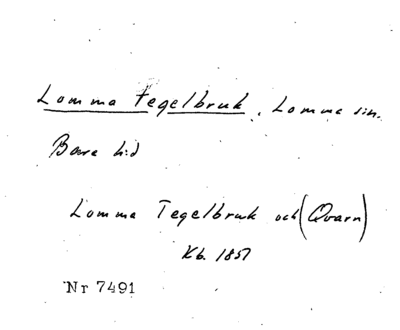 Lomma Tegelbruk. Lomma sn.
Bara hd
Lomma Tegelbruk och (Qvarn)
Kb. 1857
Nr 7491